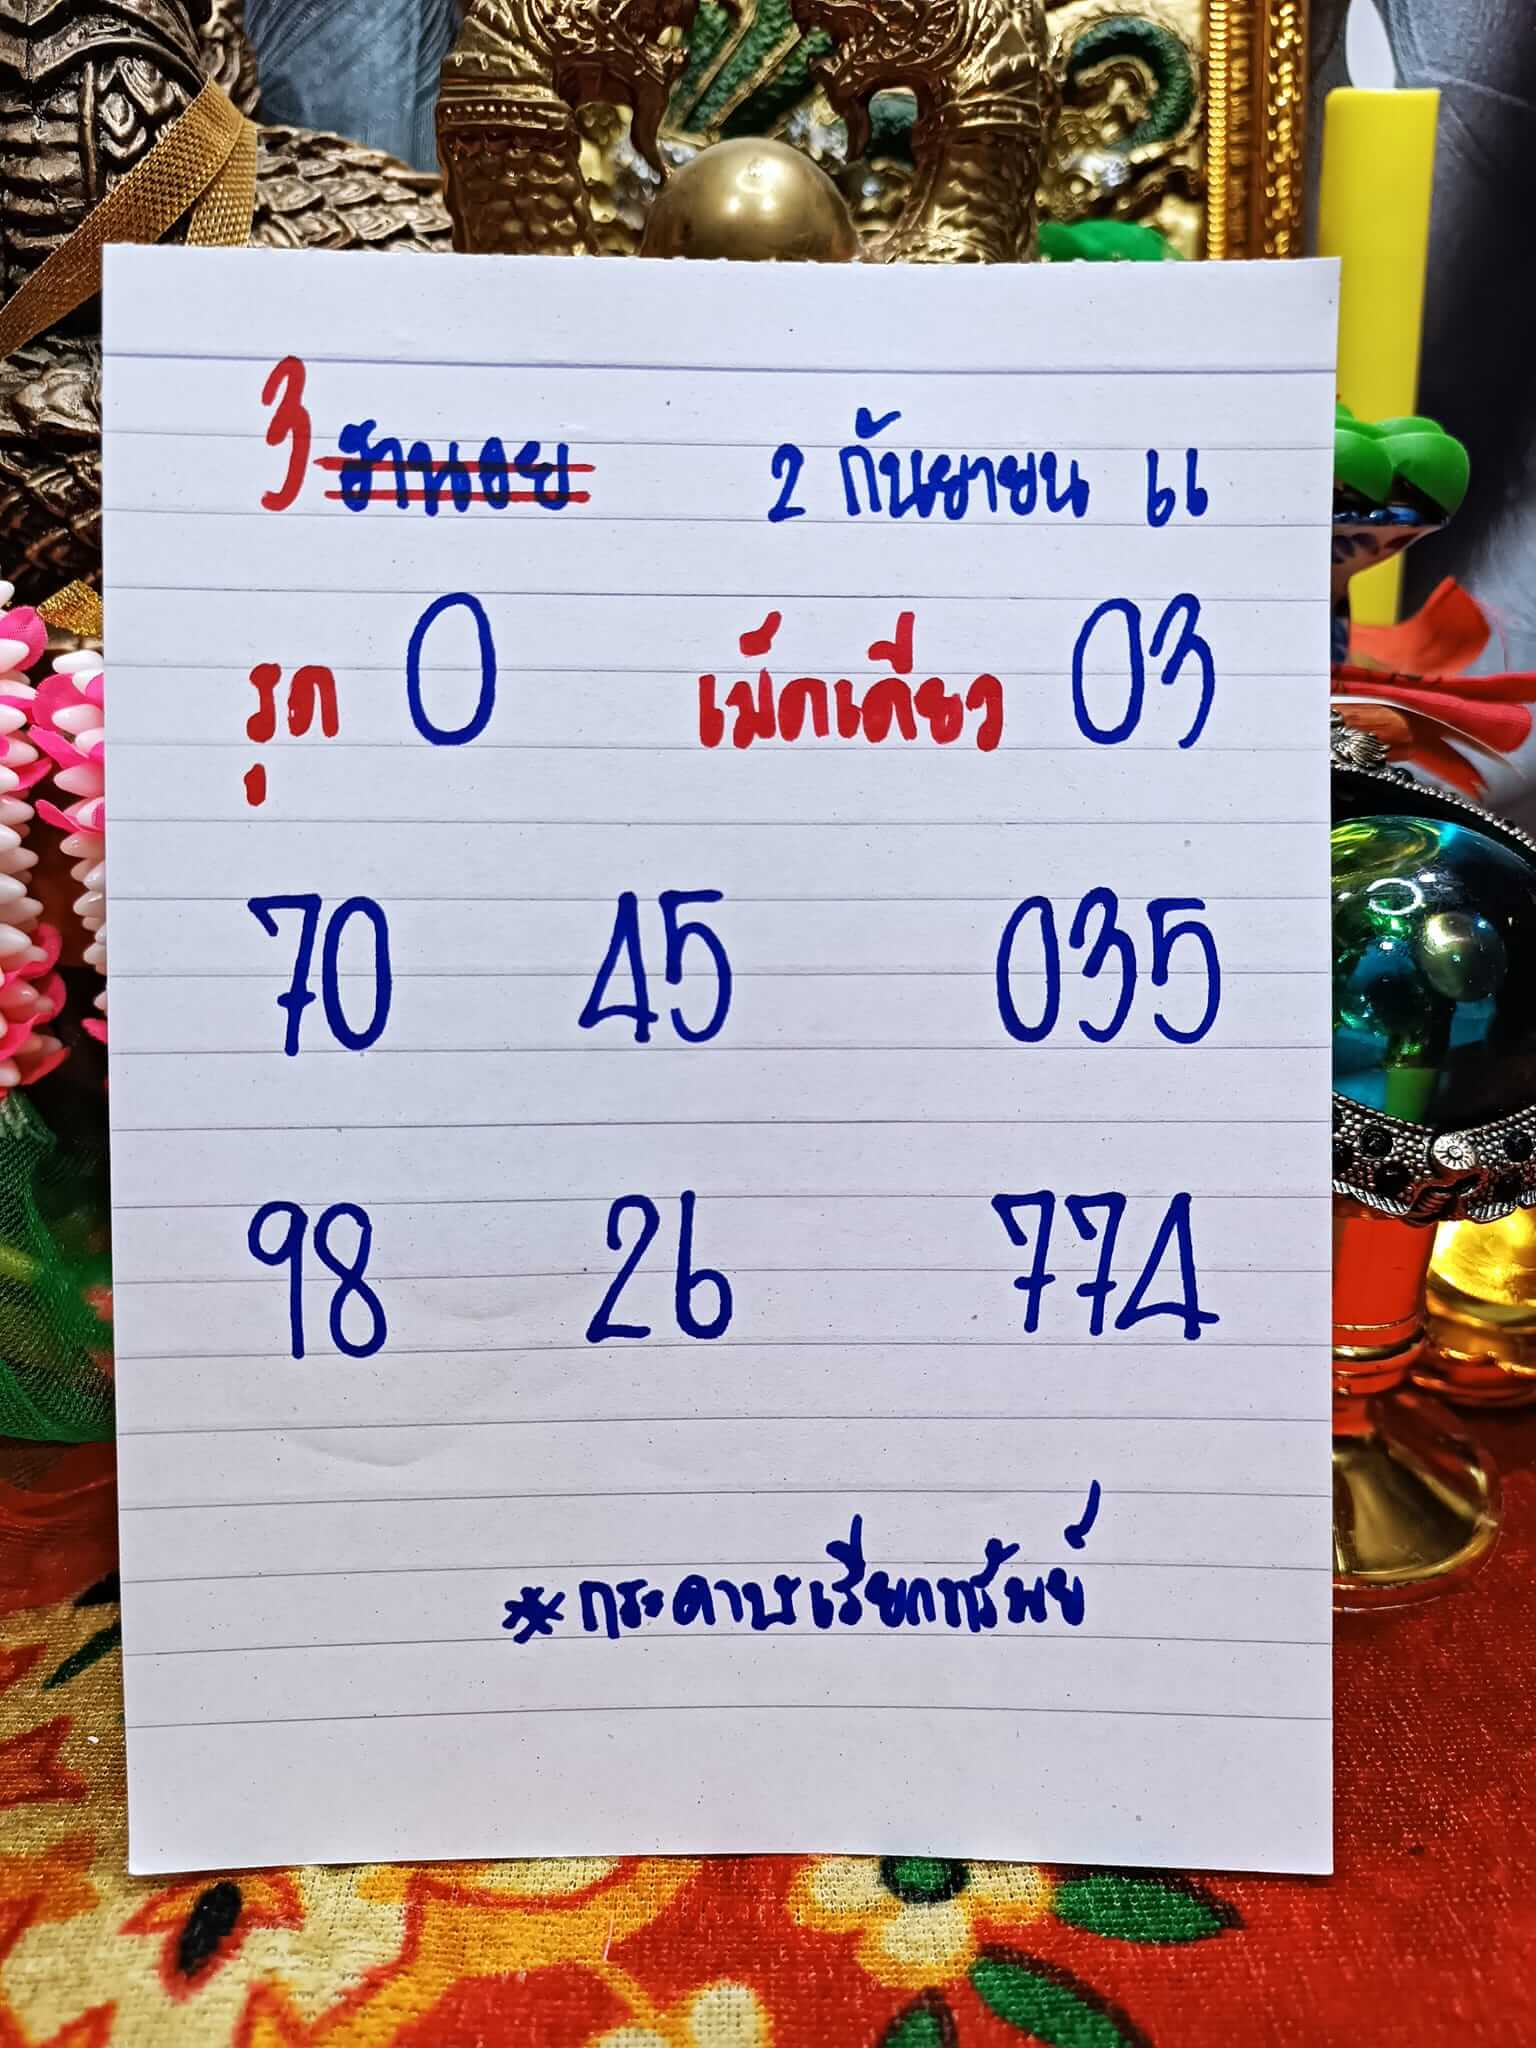 3 ฮานอย 2 กันยายน 66
รูด 0 เม็ดเดียว 03
70 45 035
98 26 774
*กระดาษเรียกทรัพย์